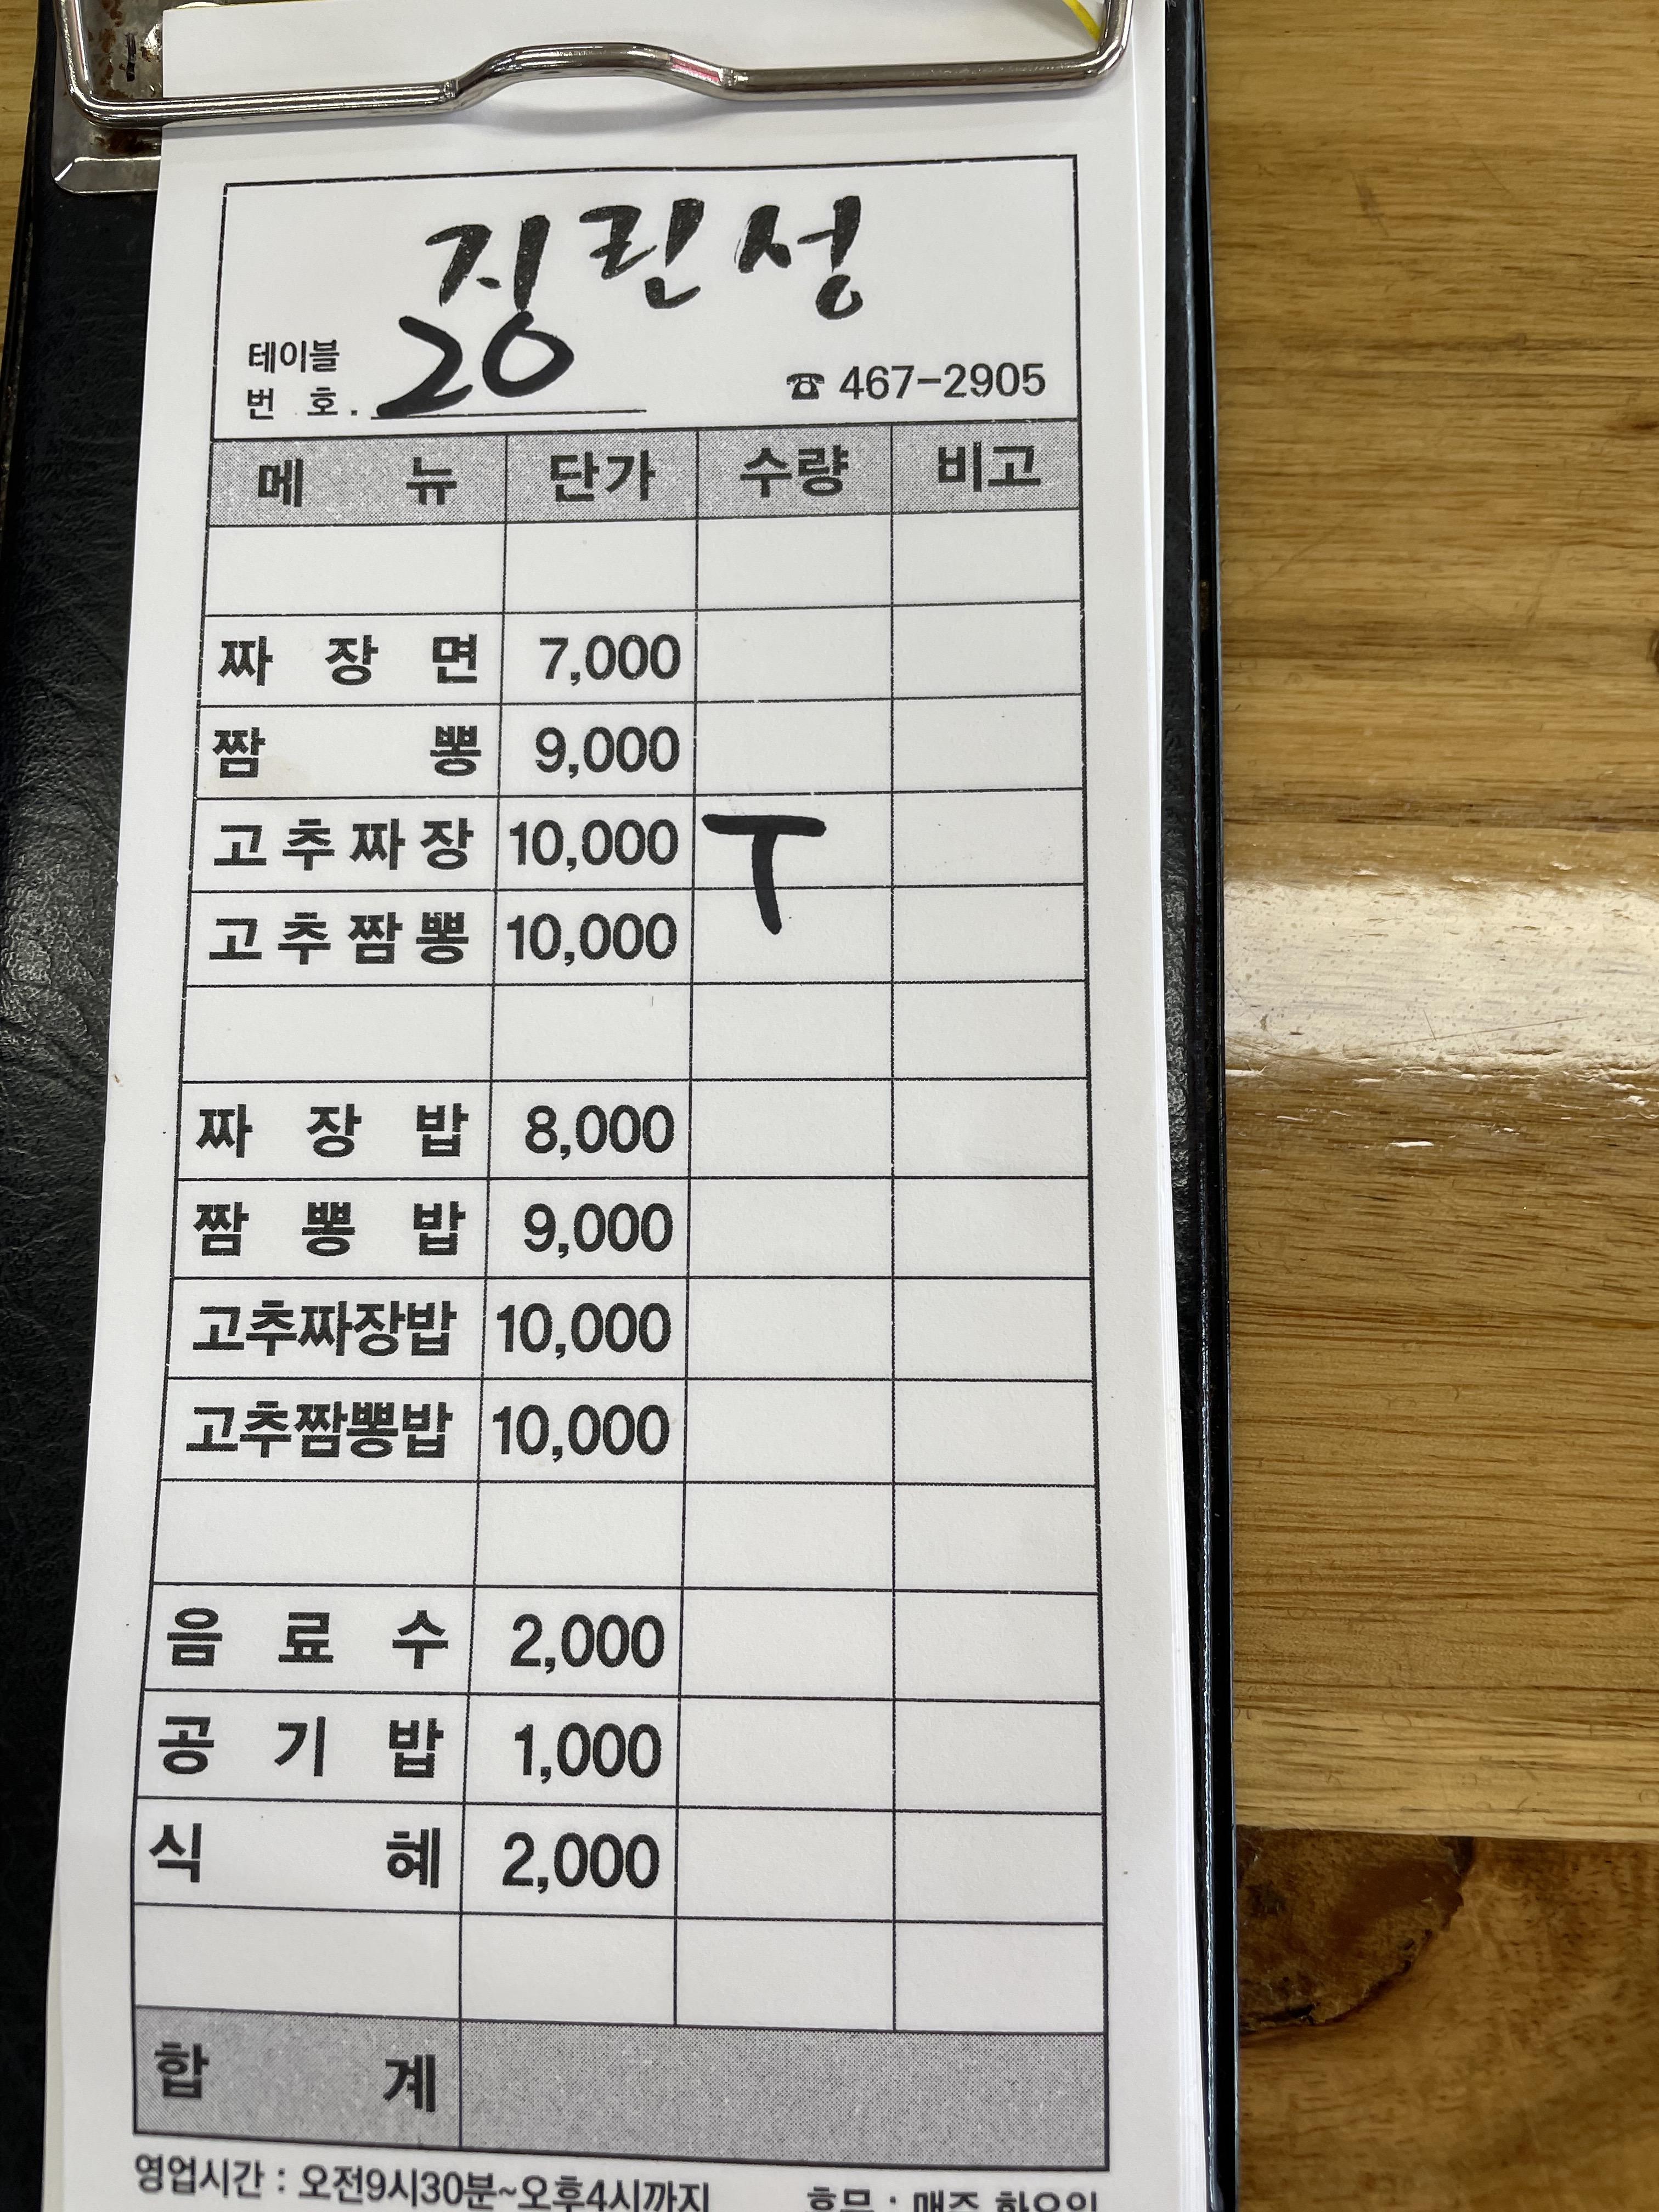 징린성
테이블
번 호. 20
☎ 467-2905
메 뉴 단가 수량 비고
짜 장 면 7,000
짬 뽕 9,000
고추짜장 10,000 T
고추짬뽕 10,000
짜 장 밥 8,000
짬 뽕 밥 9,000
고추짜장밥 10,000
고추짬뽕밥 10,000
음 료 수 2,000
공 기 밥 1,000
식 혜 2,000
합 계
영업시간 : 오전9시30분~오후4시까지 휴무 : 매주 화요일